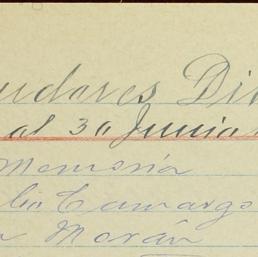 udores Di
al 30 Junio
Memoria
lio Camargo
Morán